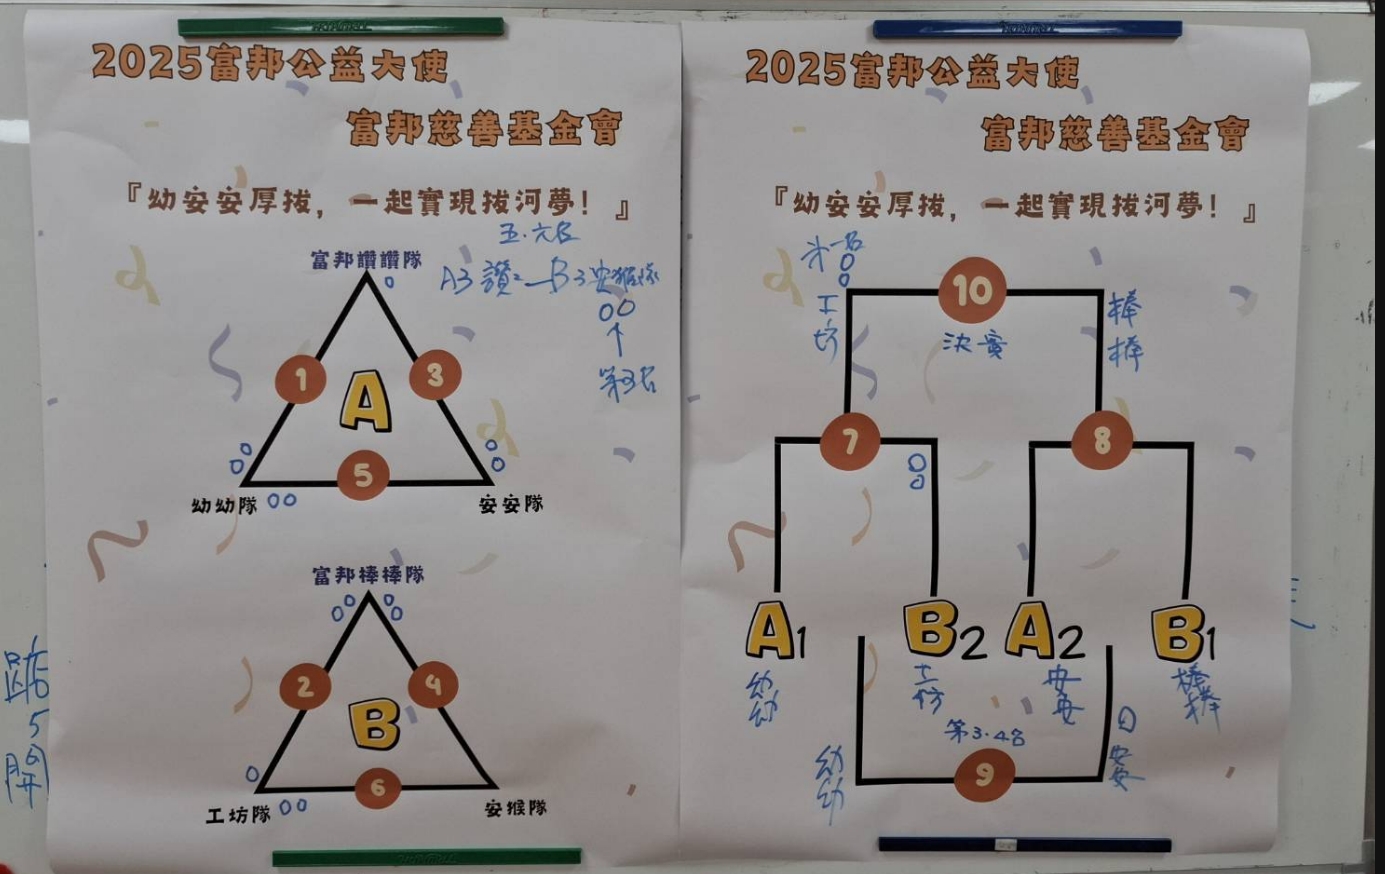 2025富邦公益大使
富邦慈善基金會
『幼安安厚拔，一起實現拔河夢！』
五.六名
富邦讚讚隊
A3 讚² — B3 安猴隊
1
3
A
第5名
5
幼幼隊
安安隊
富邦棒棒隊
2
4
B
6
工坊隊
安猴隊
2025富邦公益大使
富邦慈善基金會
『幼安安厚拔，一起實現拔河夢！』
10
工坊
決賽
棒棒
7
8
A1
B2
A2
B1
幼幼
工坊
安安
棒棒
第3.4名
9
幼幼
安安